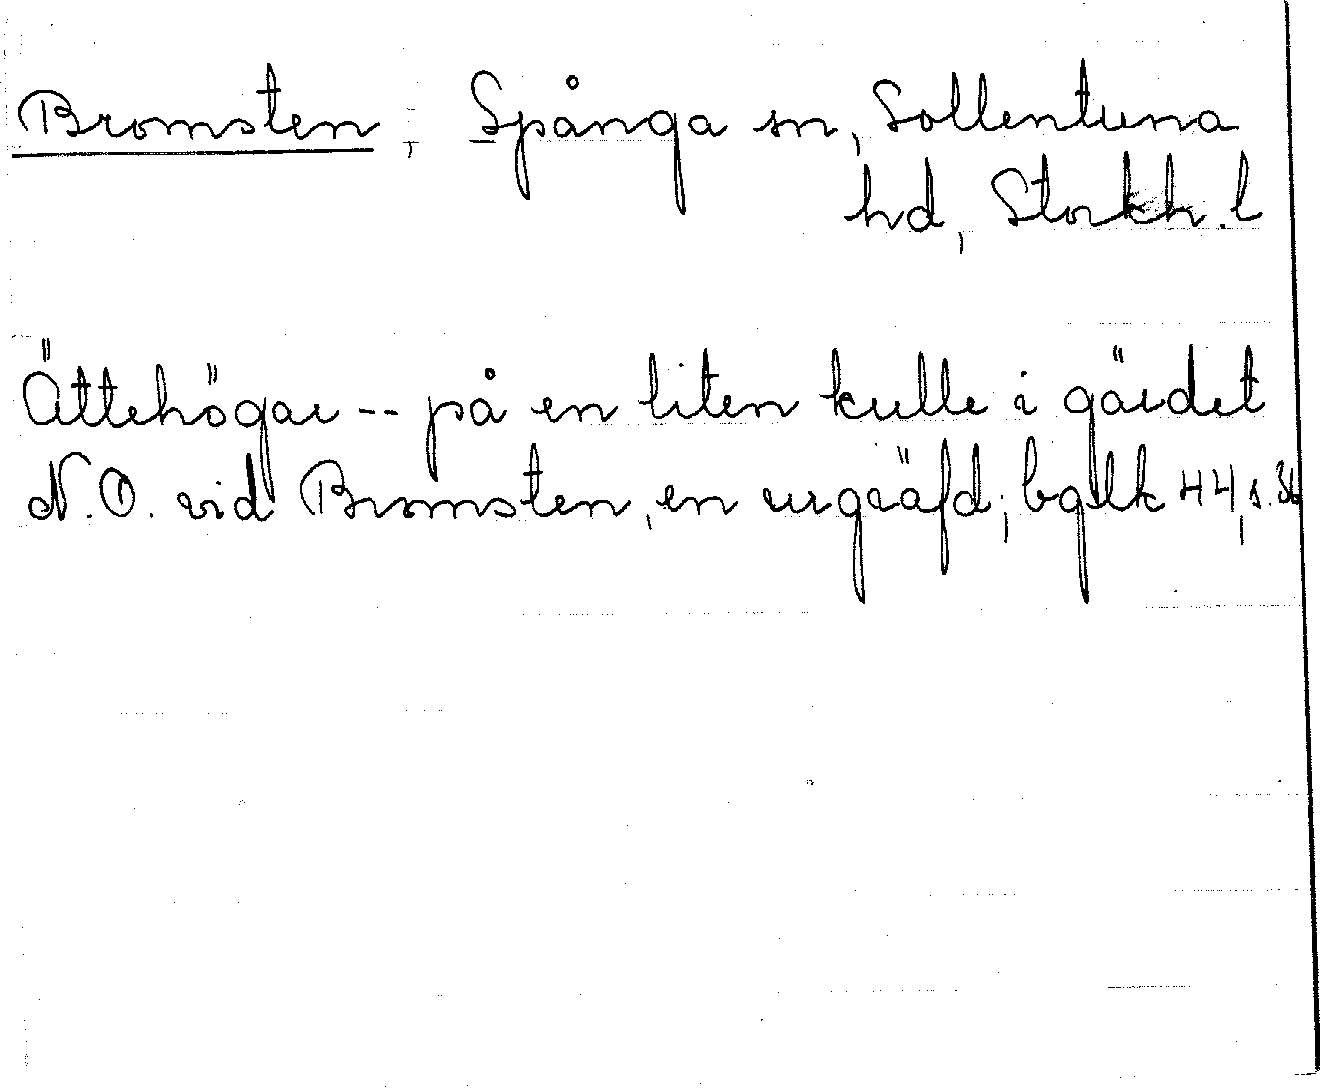 Bromsten, Spånga sn, Sollentuna
hd, Stockh. l
Ättehögar -- på en liten kulle i gärdet
N.O. vid Bromsten, en urgräfd; bglk 44, s. 36